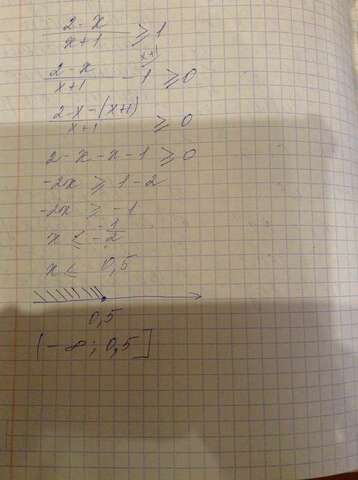 (2-x)/(x+1) ≥ 1
(2-x)/(x+1) - 1 (x+1) ≥ 0
(2-x-(x+1))/(x+1) ≥ 0
2-x-x-1 ≥ 0
-2x ≥ 1-2
-2x ≥ -1
x ≤ -1/-2
x ≤ 0,5
0,5
(-∞; 0,5]